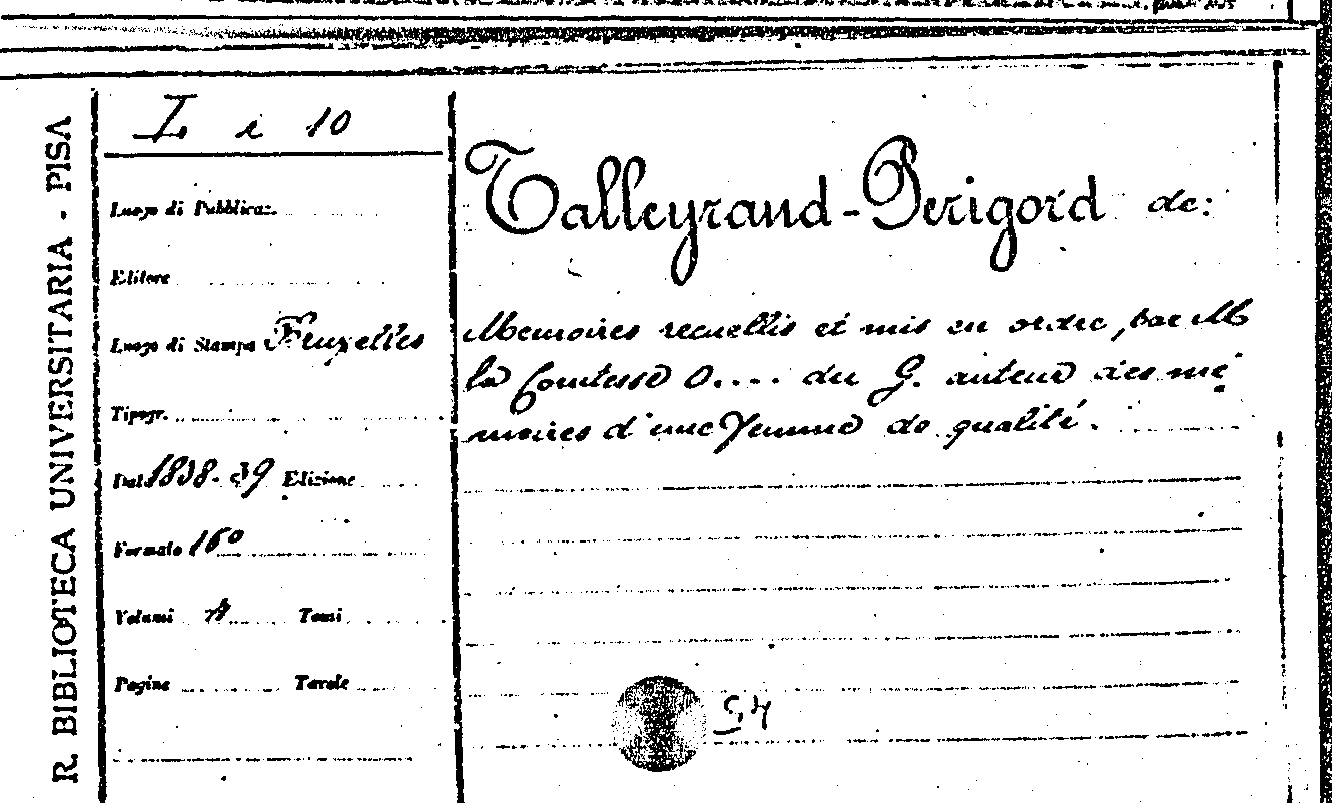 R. BIBLIOTECA UNIVERSITARIA - PISA
I. i 10
Luogo di Pubblicaz.
Editore
Luogo di Stampa Bruxelles
Tipogr.
Dal 1838-39 Edizione
Formato 16º
Volumi 4 Tomi
Pagine Tavole
Talleyrand-Perigord de:
Memoires recuellis et mis en ordre, par M
la Comtesse O.... du G. auteur des mé
moires d'une femme de qualité.